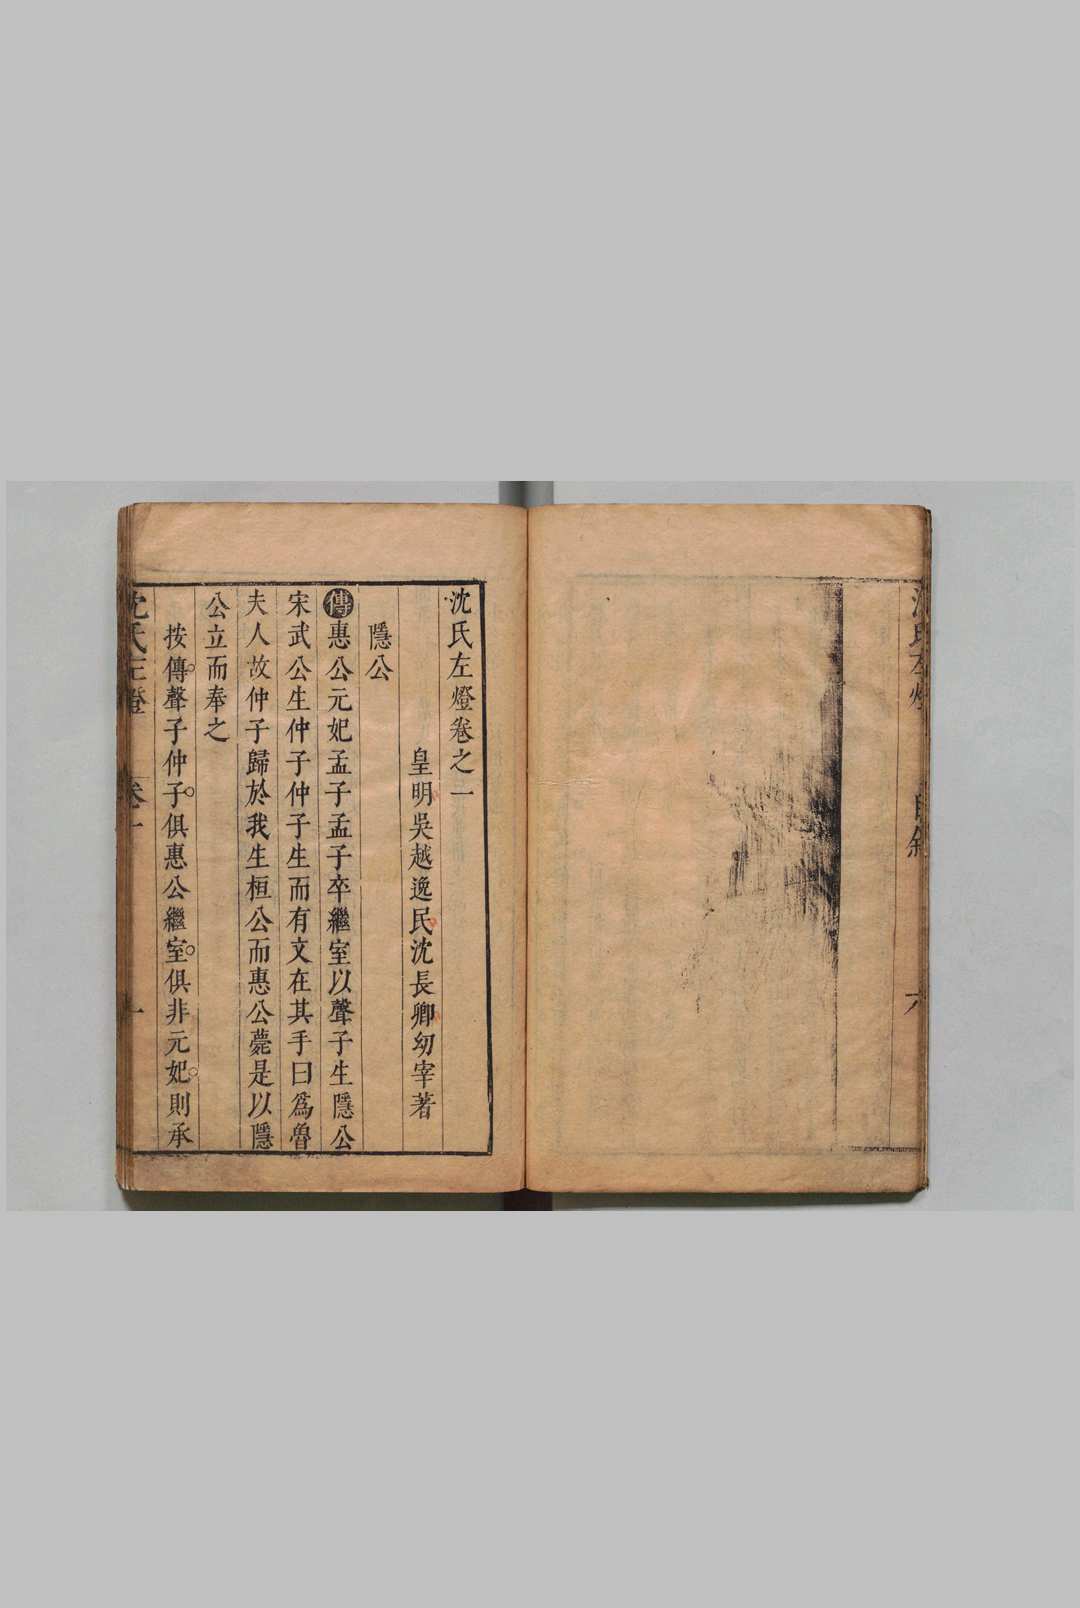 沈氏左燈
自敘
六
沈氏左燈卷之一
皇明吳越逸民沈長卿幼宰著
隱公
傳惠公元妃孟子孟子卒繼室以聲子生隱公
宋武公生仲子仲子生而有文在其手曰爲魯
夫人故仲子歸於我生桓公而惠公薨是以隱
公立而奉之
按傳聲子仲子俱惠公繼室俱非元妃則承
沈氏左燈
卷一
一